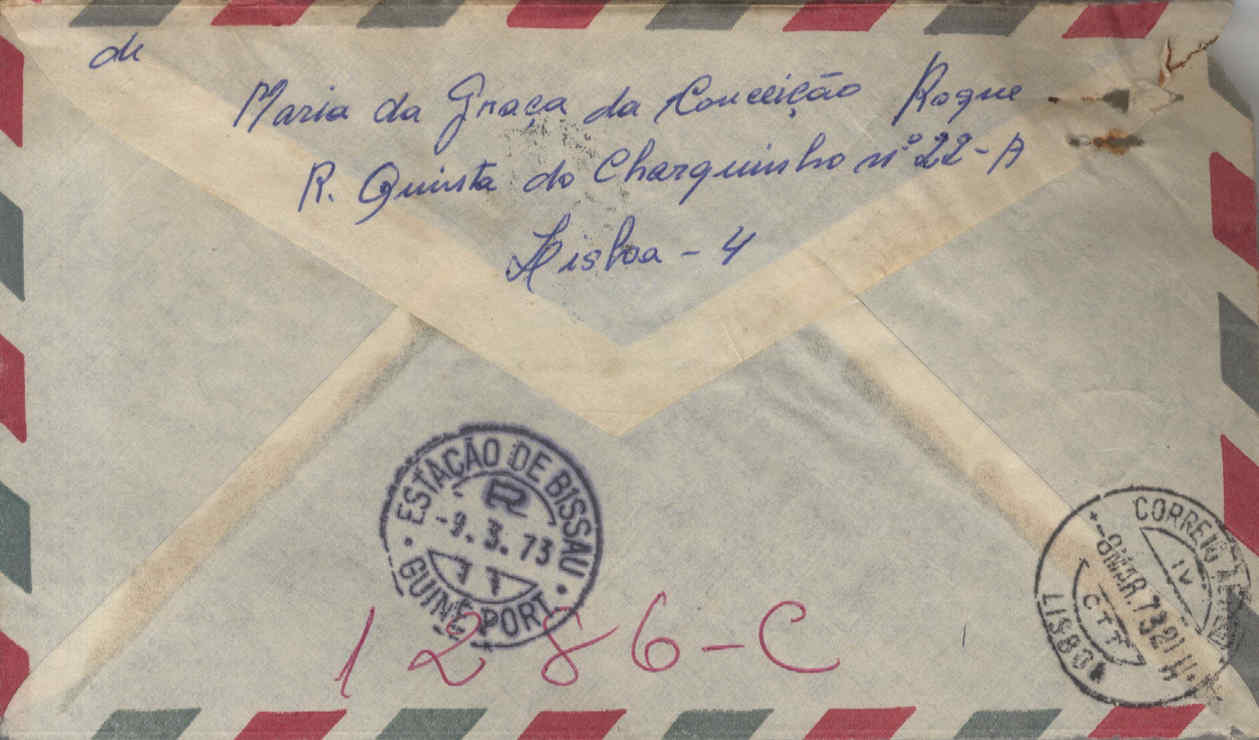 de
Maria da Graça da Conceição Roque
R. Quinta do Charquinho nº 22-A
Lisboa - 4
ESTAÇÃO DE BISSAU
R
-9.3.73
GUINÉ PORT.
1286-C
CORREIO
IV
-8MAR.73 21H
CTT
LISBOA